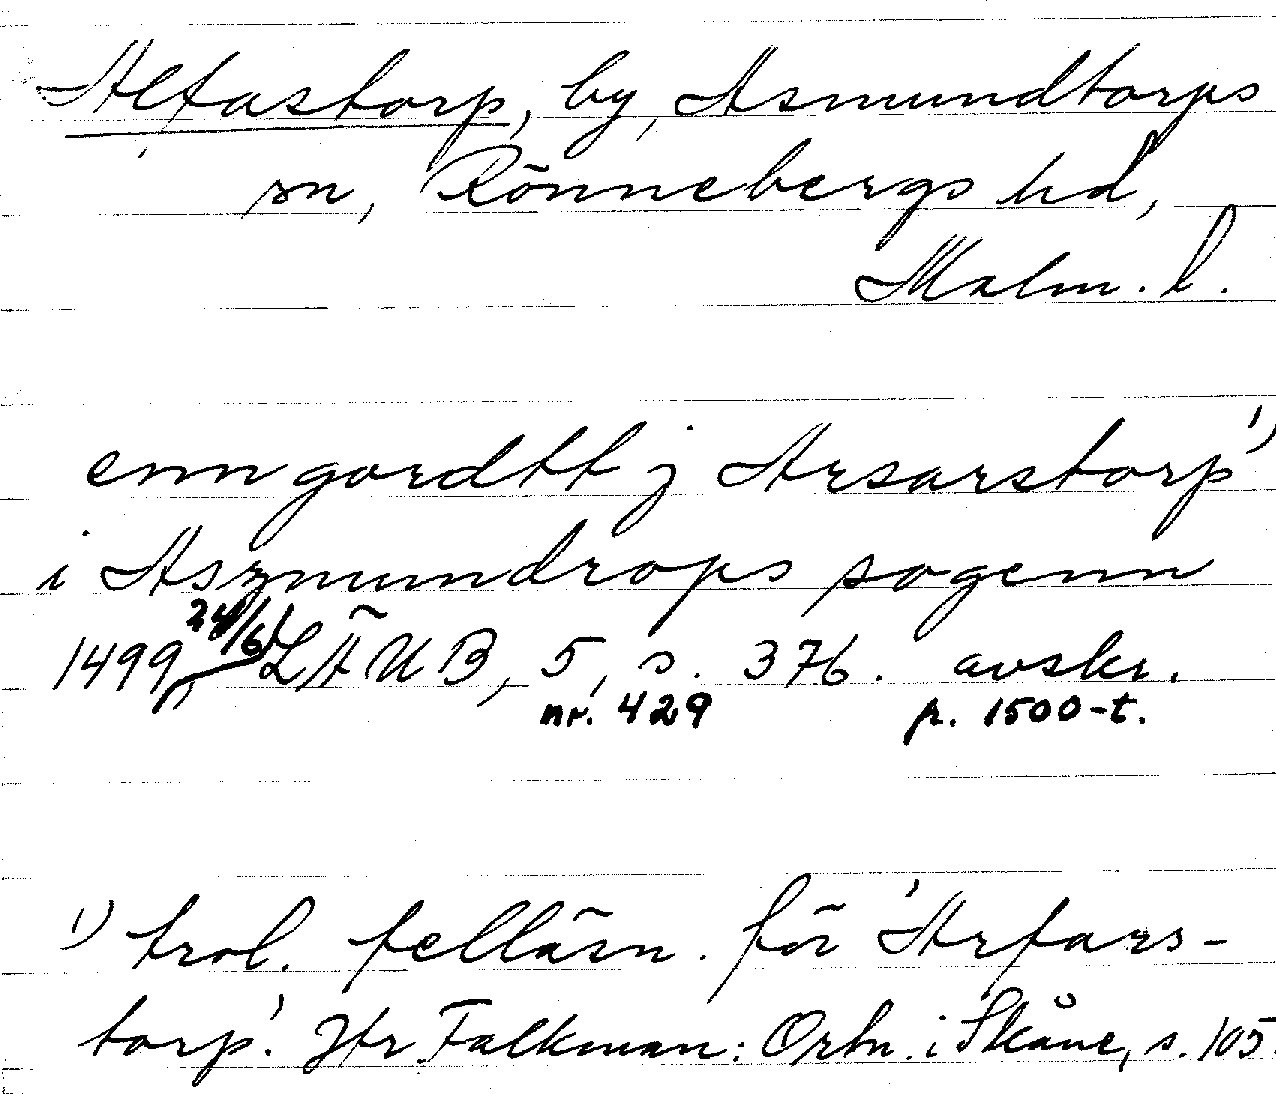 Alfastorp, by, Asmundtorps
sn, Rönnebergs hd,
Malm. l.
enn gordtt j Arsarstorp 1)
i Aszmundrops sogenn
1499 24/6 LÄUB, 5, s. 376. avskr.
nr. 429 p. 1500-t.
1) trol. felläsn. för 'Arfars-
torp'. Jfr Falkman: Ortn. i Skåne, s. 105.